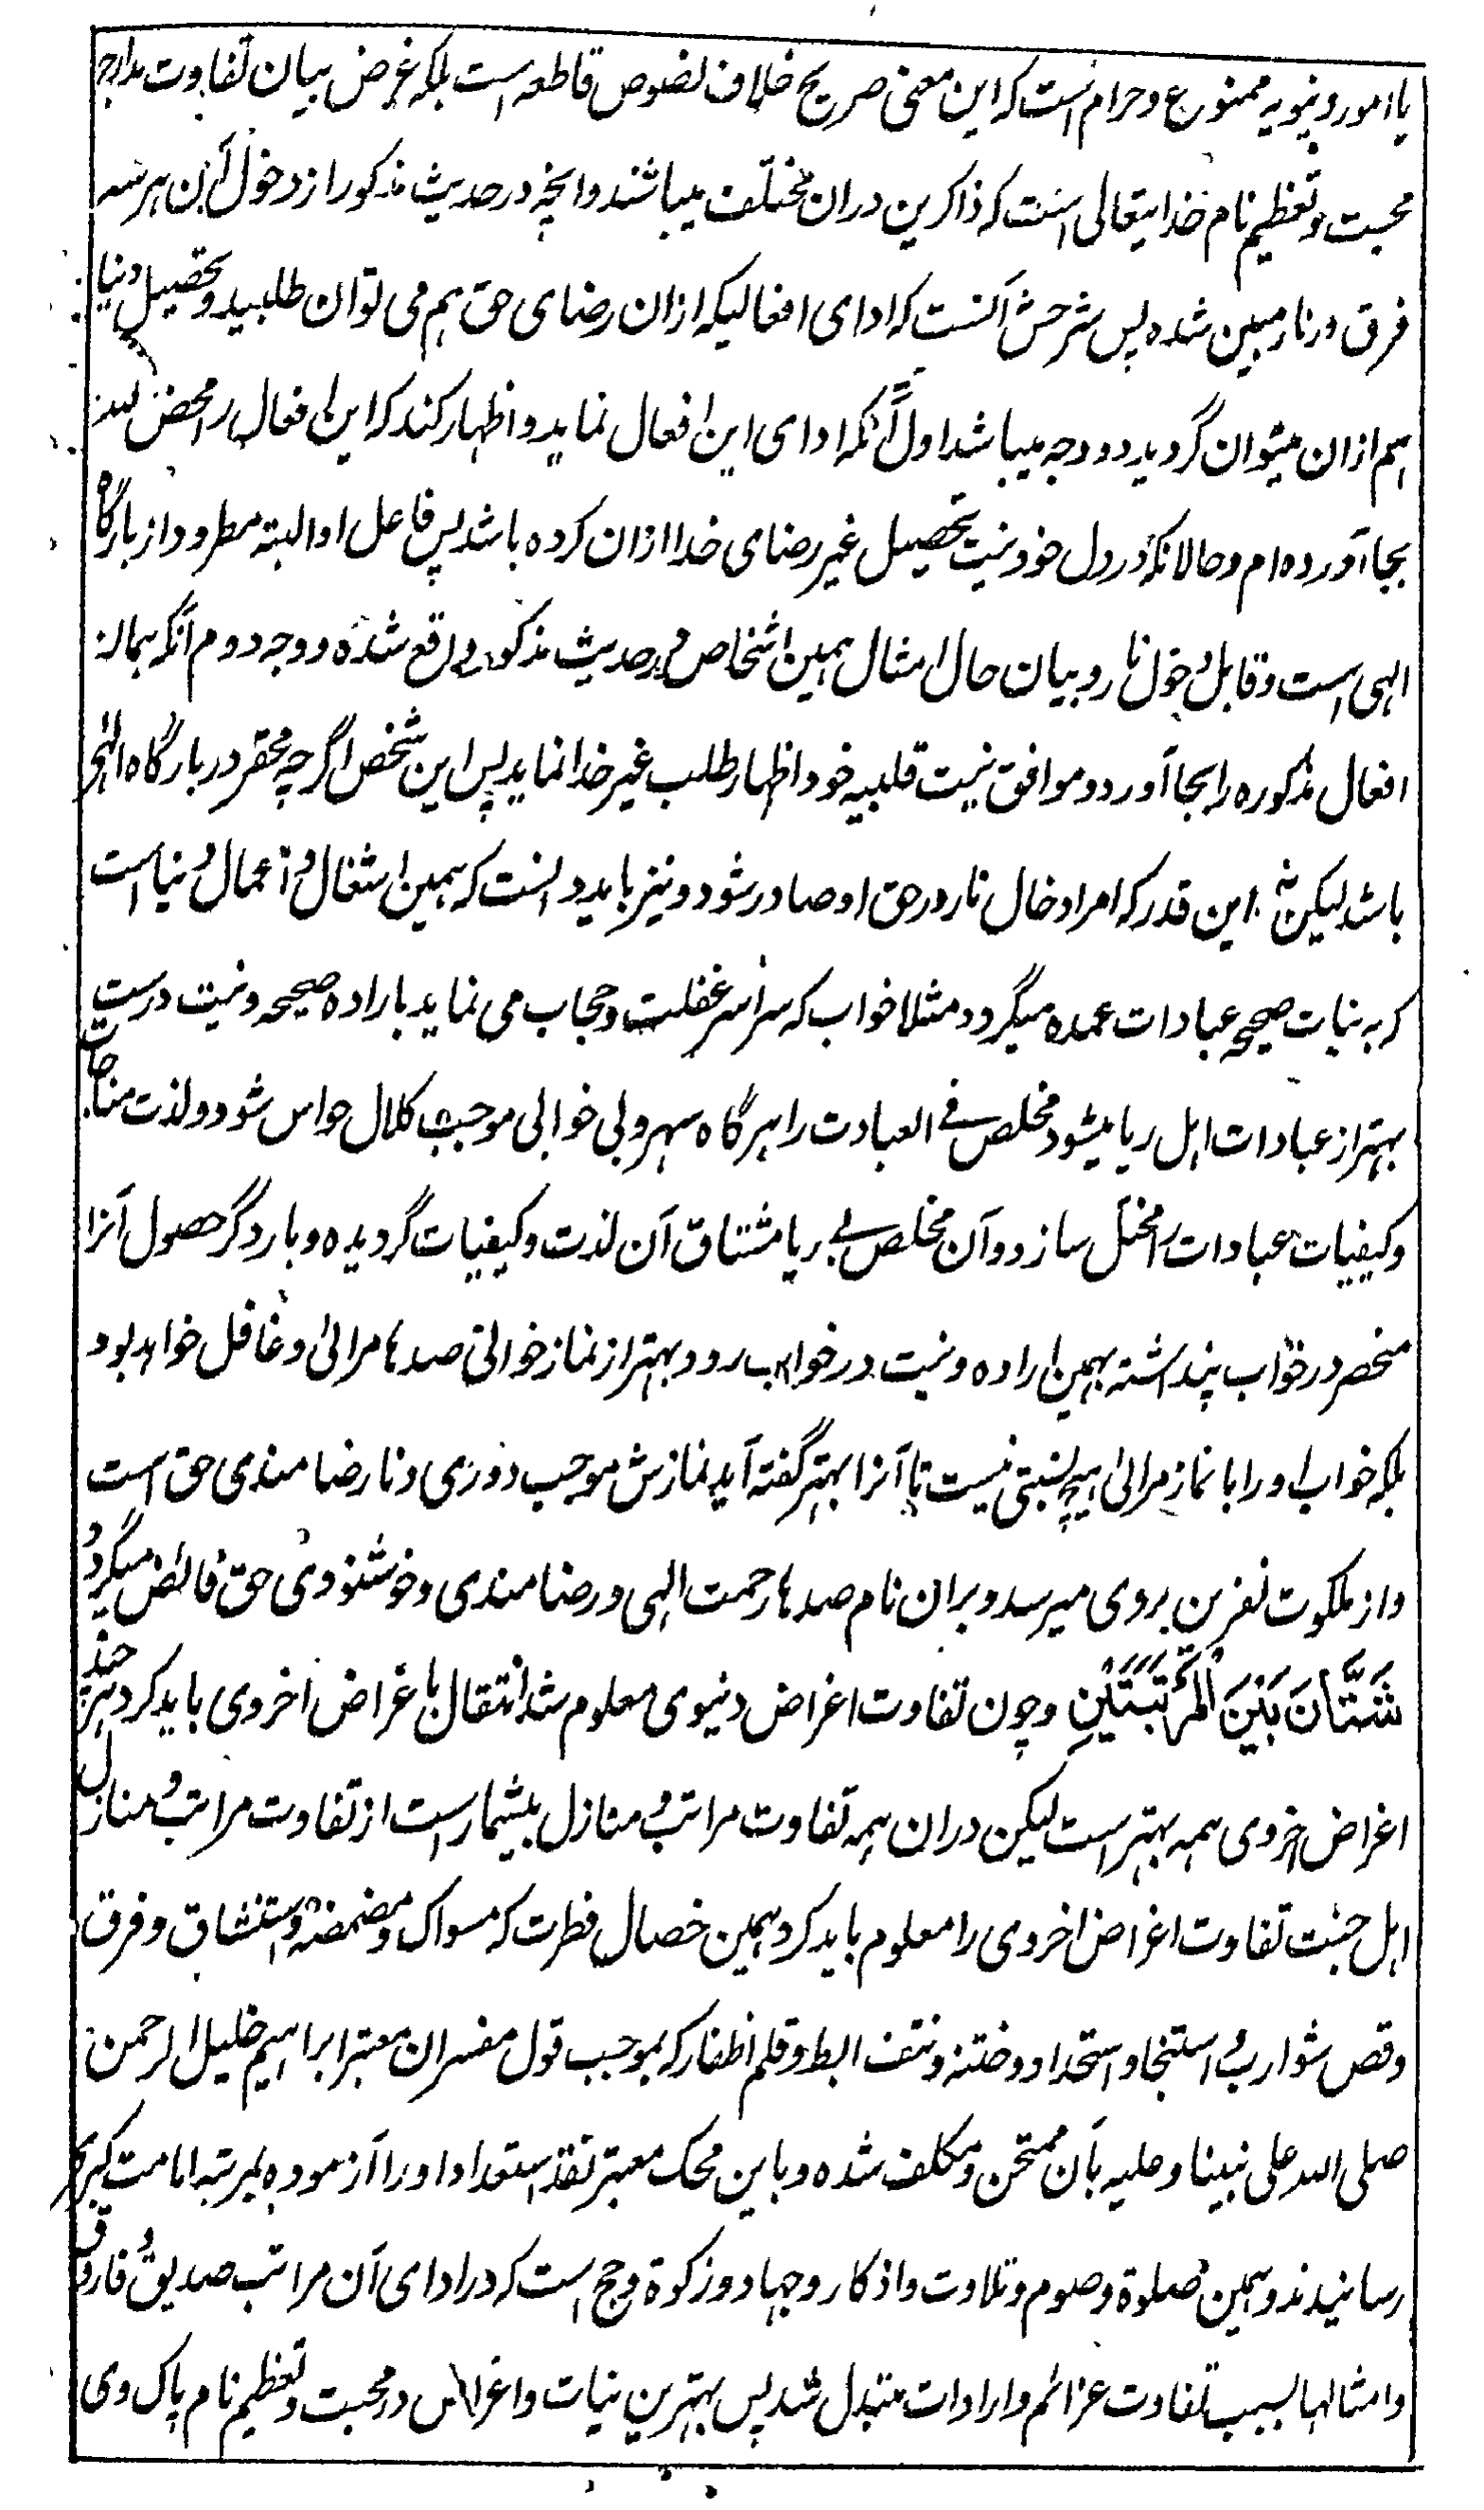 یا امور دنیویه ممنوع و حرام است که این معنی صریح خلاف نصوص قاطعه است بلکه غرض بیان تفاوت مدارج
محبت و تعظیم نام خدایتعالی است که ذاکرین دران مختلف میباشند وانچه در حدیث مذکور از دخول این هر سه
فرق در نار مبین شده پس شرحش آنست که ادای افعالیکه ازان رضای حق هم می توان طلبید و تحصیل دنیا
هم ازان میتوان گردید دو وجه میباشد اول آنکه ادای این افعال نماید و اظهار کند که این افعال را محض لله
بجا آورده ام و حالانکه در دل خود نیت تحصیل غیر رضای خدا ازان کرده باشد پس فاعل او البته مطرود از بارگاه
الهی است و قابل دخول نار و بیان حال امثال همین اشخاص در حدیث مذکور واقع شده و وجه دوم آنکه همان
افعال مذکوره را بجا آورد و موافق نیت قلبیه خود اظهار طلب غیر خدا نماید پس این شخص اگرچه محقر در بارگاه الهی
باشد لیکن نه این قدر که امر ادخال نار در حق او صادر شود و نیز باید دانست که همین اشغال و اعمال دنیا است
که به نیات صحیحه عبادات عمده میگردد مثلا خواب که سراسر غفلت و حجاب می نماید باراده صحیحه و نیت درست
بهتر از عبادات اهل ریا میشود مخلص فی العبادت را هر گاه سهر و بی خوابی موجب کلال حواس شود و لذت مناجات
و کیفیات عبادات را مختل سازد و آن مخلص بی ریا مشتاق آن لذت و کیفیات گردیده و بار دگر حصول آنرا
منحصر در خواب پنداشته بهمین اراده و نیت در خواب رود بهتر از نماز خوانی صدها مرائی و غافل خواهد بود
بلکه خواب او را با نماز مرائی هیچ نسبتی نیست تا آنرا بهتر گفته آید نمازش موجب دوری و نارضامندی حق است
و از ملکوت نفرین بروی میرسد و بران نام صدها رحمت الهی و رضامندی و خوشنودی حق فائض میگردد
شَتَّانَ بَیْنَ الْمَرْتَبَتَیْنِ و چون تفاوت اغراض دنیوی معلوم شد انتقال باغراض اخروی باید کرد هر چند
اغراض اخروی همه بهتر است لیکن دران همه تفاوت مراتب و منازل بیشمار است از تفاوت مراتب و منازل
اهل جنت تفاوت اغراض اخروی را معلوم باید کرد همین خصال فطرت که مسواک و مضمضه و استنشاق و فرق
و قص شوارب و استنجا و استحداد و ختنه و نتف ابط و قلم اظفار که بموجب قول مفسران معتبر ابراهیم خلیل الرحمن
صلی الله علی نبینا و علیه بآن ممتحن و مکلف شده و باین محک معتبر نقد استعداد او را آزموده بمرتبه امامت کبری
رسانیدند و همین صلوة و صوم و تلاوت و اذکار و جهاد و زکوة و حج است که در ادای آن مراتب صدیق و فاروق
و امثالها بسبب تفاوت عزائم و ارادات متبدل شد پس بهترین نیات و اغراض در محبت و تعظیم نام پاک وی